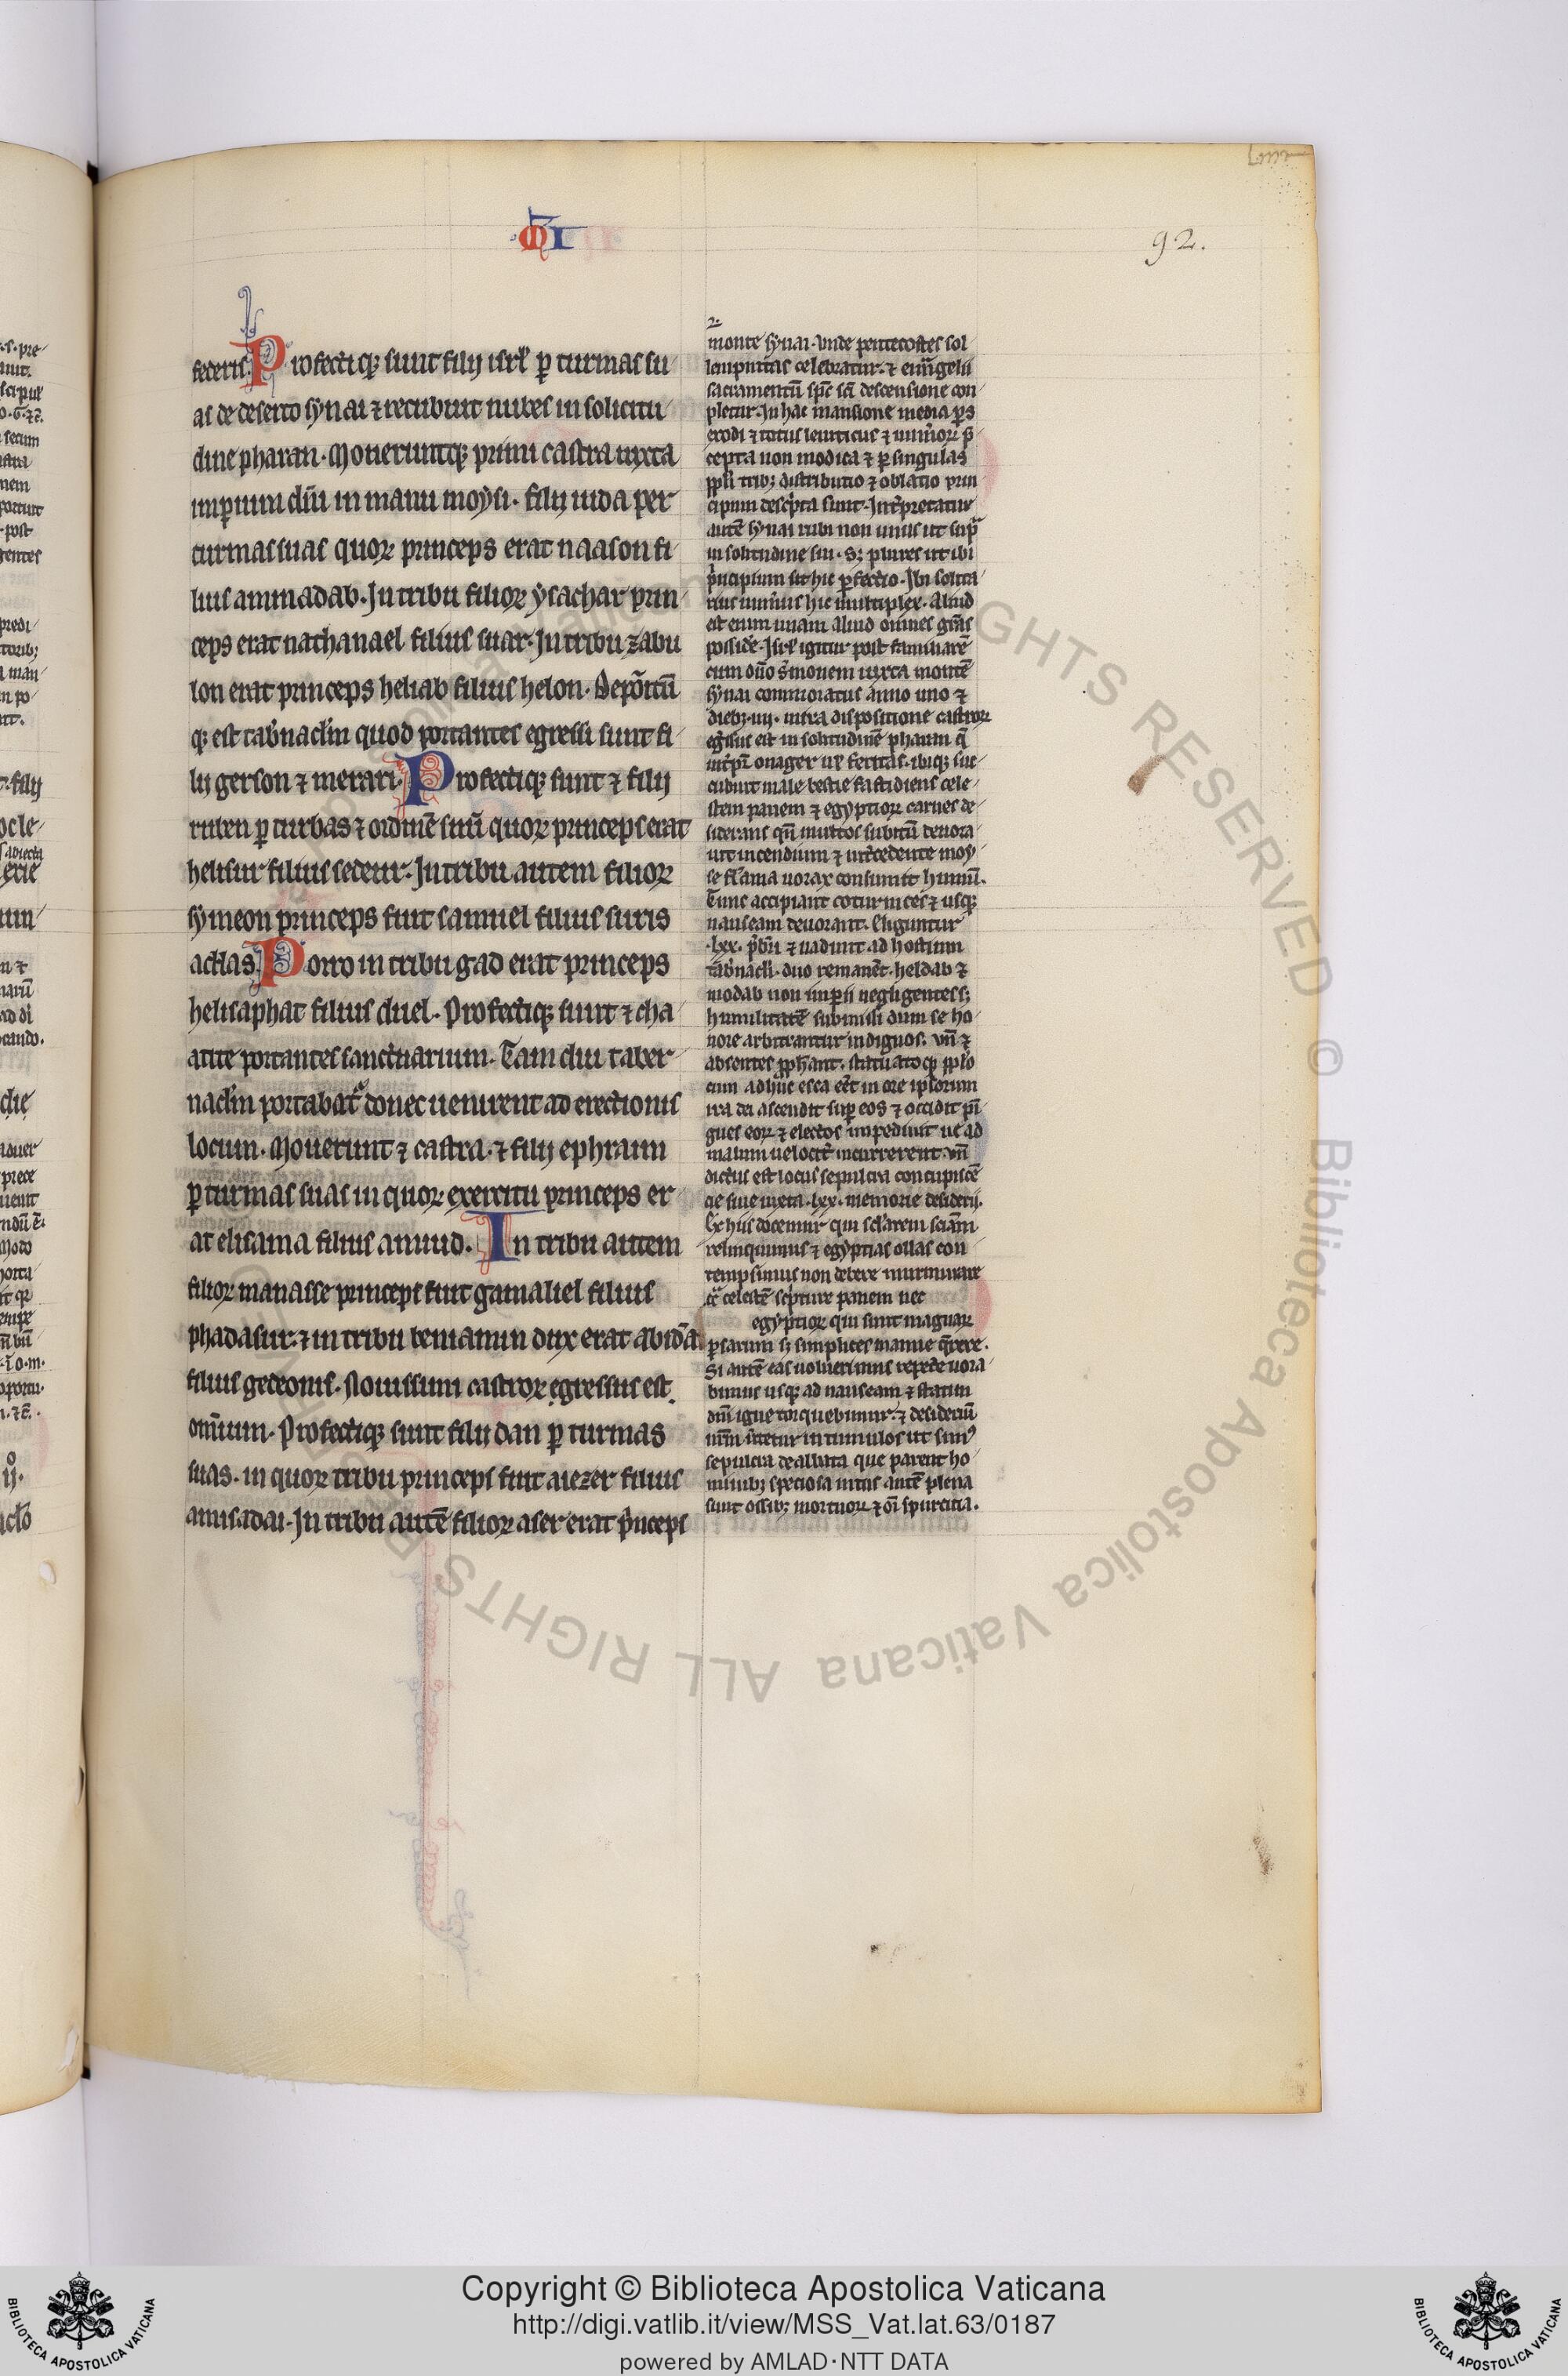 MI
92.
federis. Profectiq; sunt filij isrl' p turmas su
as de deserto synai ⁊ recubuit nubes in solitu
dine pharan. Moueruntq; primi castra iuxta
imperium dni in manu moysi. filij iuda per
turmas suas quoꝝ princeps erat naason fi
lius aminadab. In tribu filioꝝ ysachar prin
ceps erat nathanael filius suar. In tribu zabu
lon erat princeps heliab filius helon. Depositū
q; est tabnaclm quod portantes egressi sunt fi
lij gerson ⁊ merari. Profectiq; sunt ⁊ filij
ruben p turbas ⁊ ordinē suū quoꝝ princeps erat
helisur filius sedeur. In tribu autem filioꝝ
symeon princeps fuit samuel filius suris
adias. Porro in tribu gad erat princeps
helisaphat filius duel. Profectiq; sunt ⁊ cha
atite portantes sanctuarium. Tam diu taber
naclm portabat donec uenirent ad erectionis
locum. Mouerunt ⁊ castra. ⁊ filij ephraim
p turmas suas in quoꝝ exercitu princeps er
at elisama filius amiud. In tribu autem
filioꝝ manasse princeps fuit gamaliel filius
phadasur. ⁊ in tribu beniamin dux erat abidā
filius gedeonis. Nouissimi castroꝝ egressus est
omium. Profectiq; sunt filij dan p turmas
suas. in quoꝝ tribu princeps fuit aiezer filius
amisadai. In tribu autē filioꝝ aser erat pnceps
2.
monte synai. Vnde pentecostes sol
lempnitas celebratur. ⁊ euuāgelii
sacramentū spc sci descensione con
pletur. In hac mansione media pars
exodi ⁊ totus leuiticus ⁊ numoꝝ p
cepta non modica ⁊ p singulas
ppli trib; distributio ⁊ oblatio prin
cipum descpta sunt. Interpretatur
autē synai rubi non unus ut sup
in solitudine sin. s; plures ut ibi
pncipium sit hic pfectio. Ibi solita
rius numus hic multiplex. Aliud
est enim unam aliud omnes gras
posside. Isrl' igitur post familiarē
cum dno smonem iuxta montē
synai commoratus anno uno ⁊
dieb; iiij. mira dispositione castroꝝ
egssus est in solitudinē pharan q
intpr onager ul' feritas. ibiq; suc
cubuit male bestie fastidiens cele
stem panem ⁊ egyptioꝝ carnes de
siderans qn multos subitū deuora
uit incendium ⁊ intcedente moy
se flama uorax consumit humū.
Tunc accipiunt coturnices ⁊ usq;
nauseam deuorant. Eliguntur
.lxx. pbri ⁊ uadunt ad hostium
tabnacli. duo remanet. heldab ⁊
modab non imperii negligentes s;
humilitatē submissi dum se ho
nore arbitrantur indignos. vn ⁊
absentes pphant. statuatoq; pplo
cum adhuc esca eet in ore ipsorum
ira dei ascendit sup eos ⁊ occidit pi
gues eoꝝ ⁊ electos impediuit ne ad
malum uelocit incurrerent. vn
dictus est locus sepulcra concupiscē
tie siue iuxta .lxx. memorie desiderij.
Ex hiis docemur qui sclarem sciam
relinquimus ⁊ egyptias ollas con
tempsimus non debere murmurare
celestē scpture panem nec
egyptioꝝ qui sunt magnaꝝ
psarum s; simplices manne qrere.
Si autē eas uoluerimus repete uora
bimus usq; ad nauseam ⁊ statim
dni igne torquebimur. ⁊ desideriū
nrm utetur in tumulos ut sim9
sepulcra dealbata que parent ho
minib; speciosa intus autē plena
sunt ossib; mortuoꝝ ⁊ oi spurcitia.
Copyright © Biblioteca Apostolica Vaticana
http://digi.vatlib.it/view/MSS_Vat.lat.63/0187
powered by AMLAD·NTT DATA
BIBLIOTECA APOSTOLICA VATICANA
BIBLIOTECA APOSTOLICA VATICANA
© Biblioteca Apostolica Vaticana ALL RIGHTS RESERVED